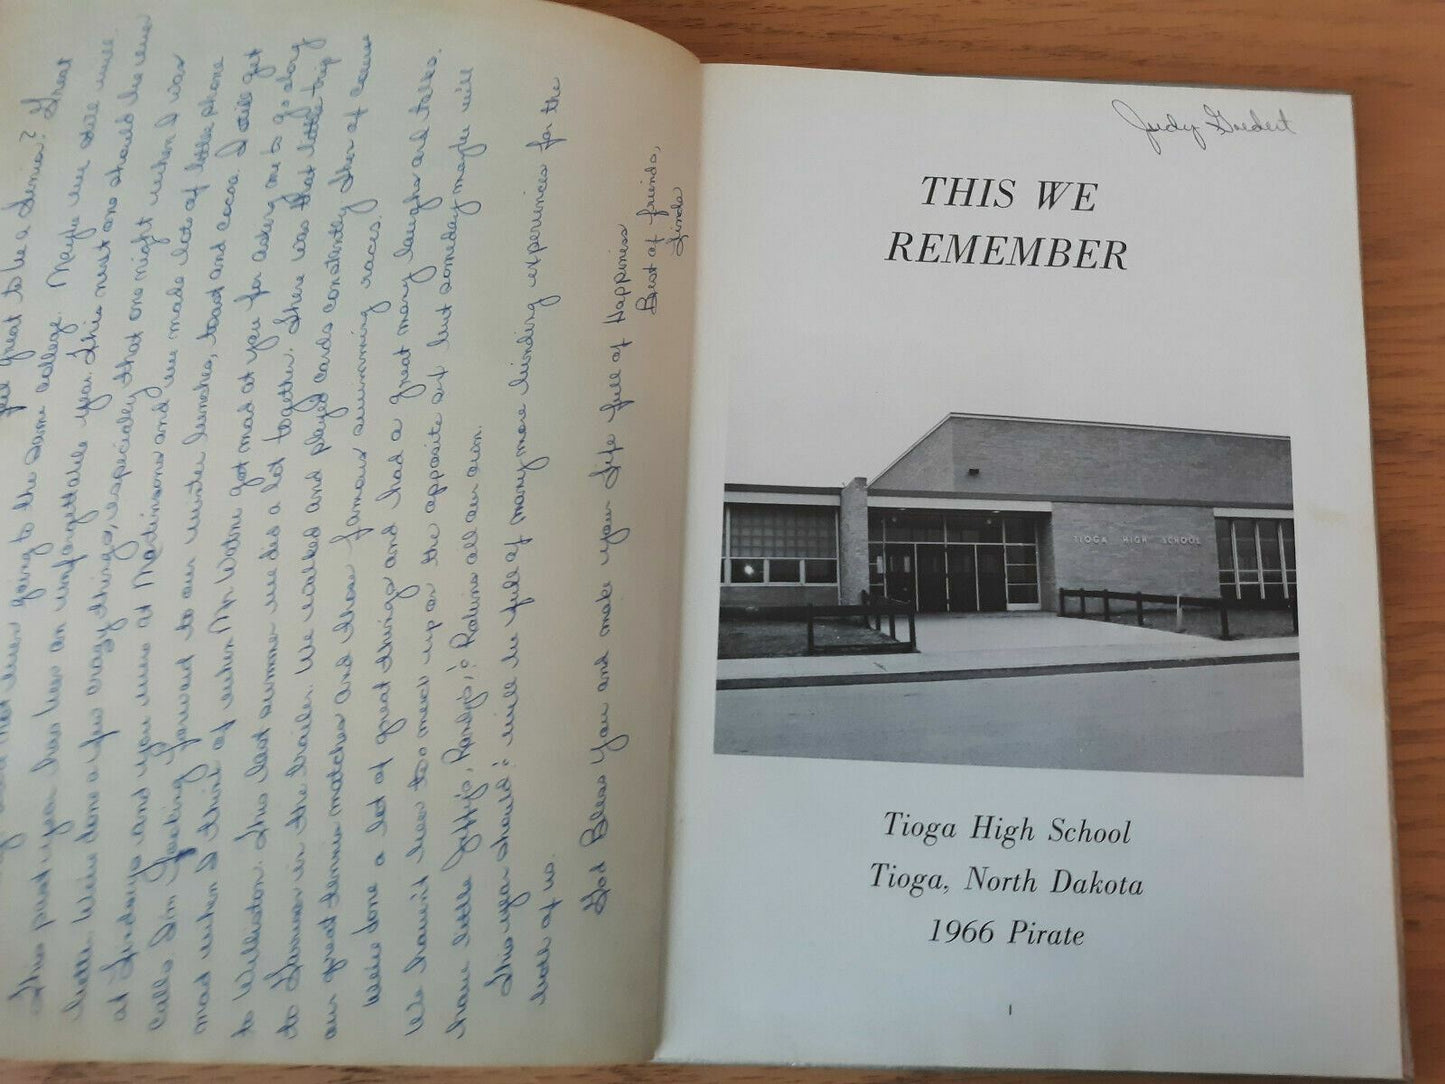 feel great to be a Senior? Great
going to the same college. Maybe we still will.
This past year has been an unforgettable year. This next one should be even
better. We've done a few crazy things, especially that one night when I was
at Lindys and you were at Madisons and we made lots of little phone
calls. I'm looking forward to our winter lunches, toast and cocoa. I still get
mad when I think of when Mr. got mad at you for asking me to go along
to Williston. This last summer we did a lot together. There was that little trip
to in the trailer. We walked and played cards constantly then of course
our great tennis matches and those famous swimming races.
We've done a lot of great things and had a great many laughs and talks.
We haven't been too much up on the opposite sex but someday maybe we'll
have little Jeffy's, Randy's, & all our own.
This year should & will be full of many more binding experiences for the
both of us.
God Bless You and make your Life full of Happiness
Best of friends,
Linda
Judy Goedert
THIS WE
REMEMBER
TIOGA HIGH SCHOOL
Tioga High School
Tioga, North Dakota
1966 Pirate
1